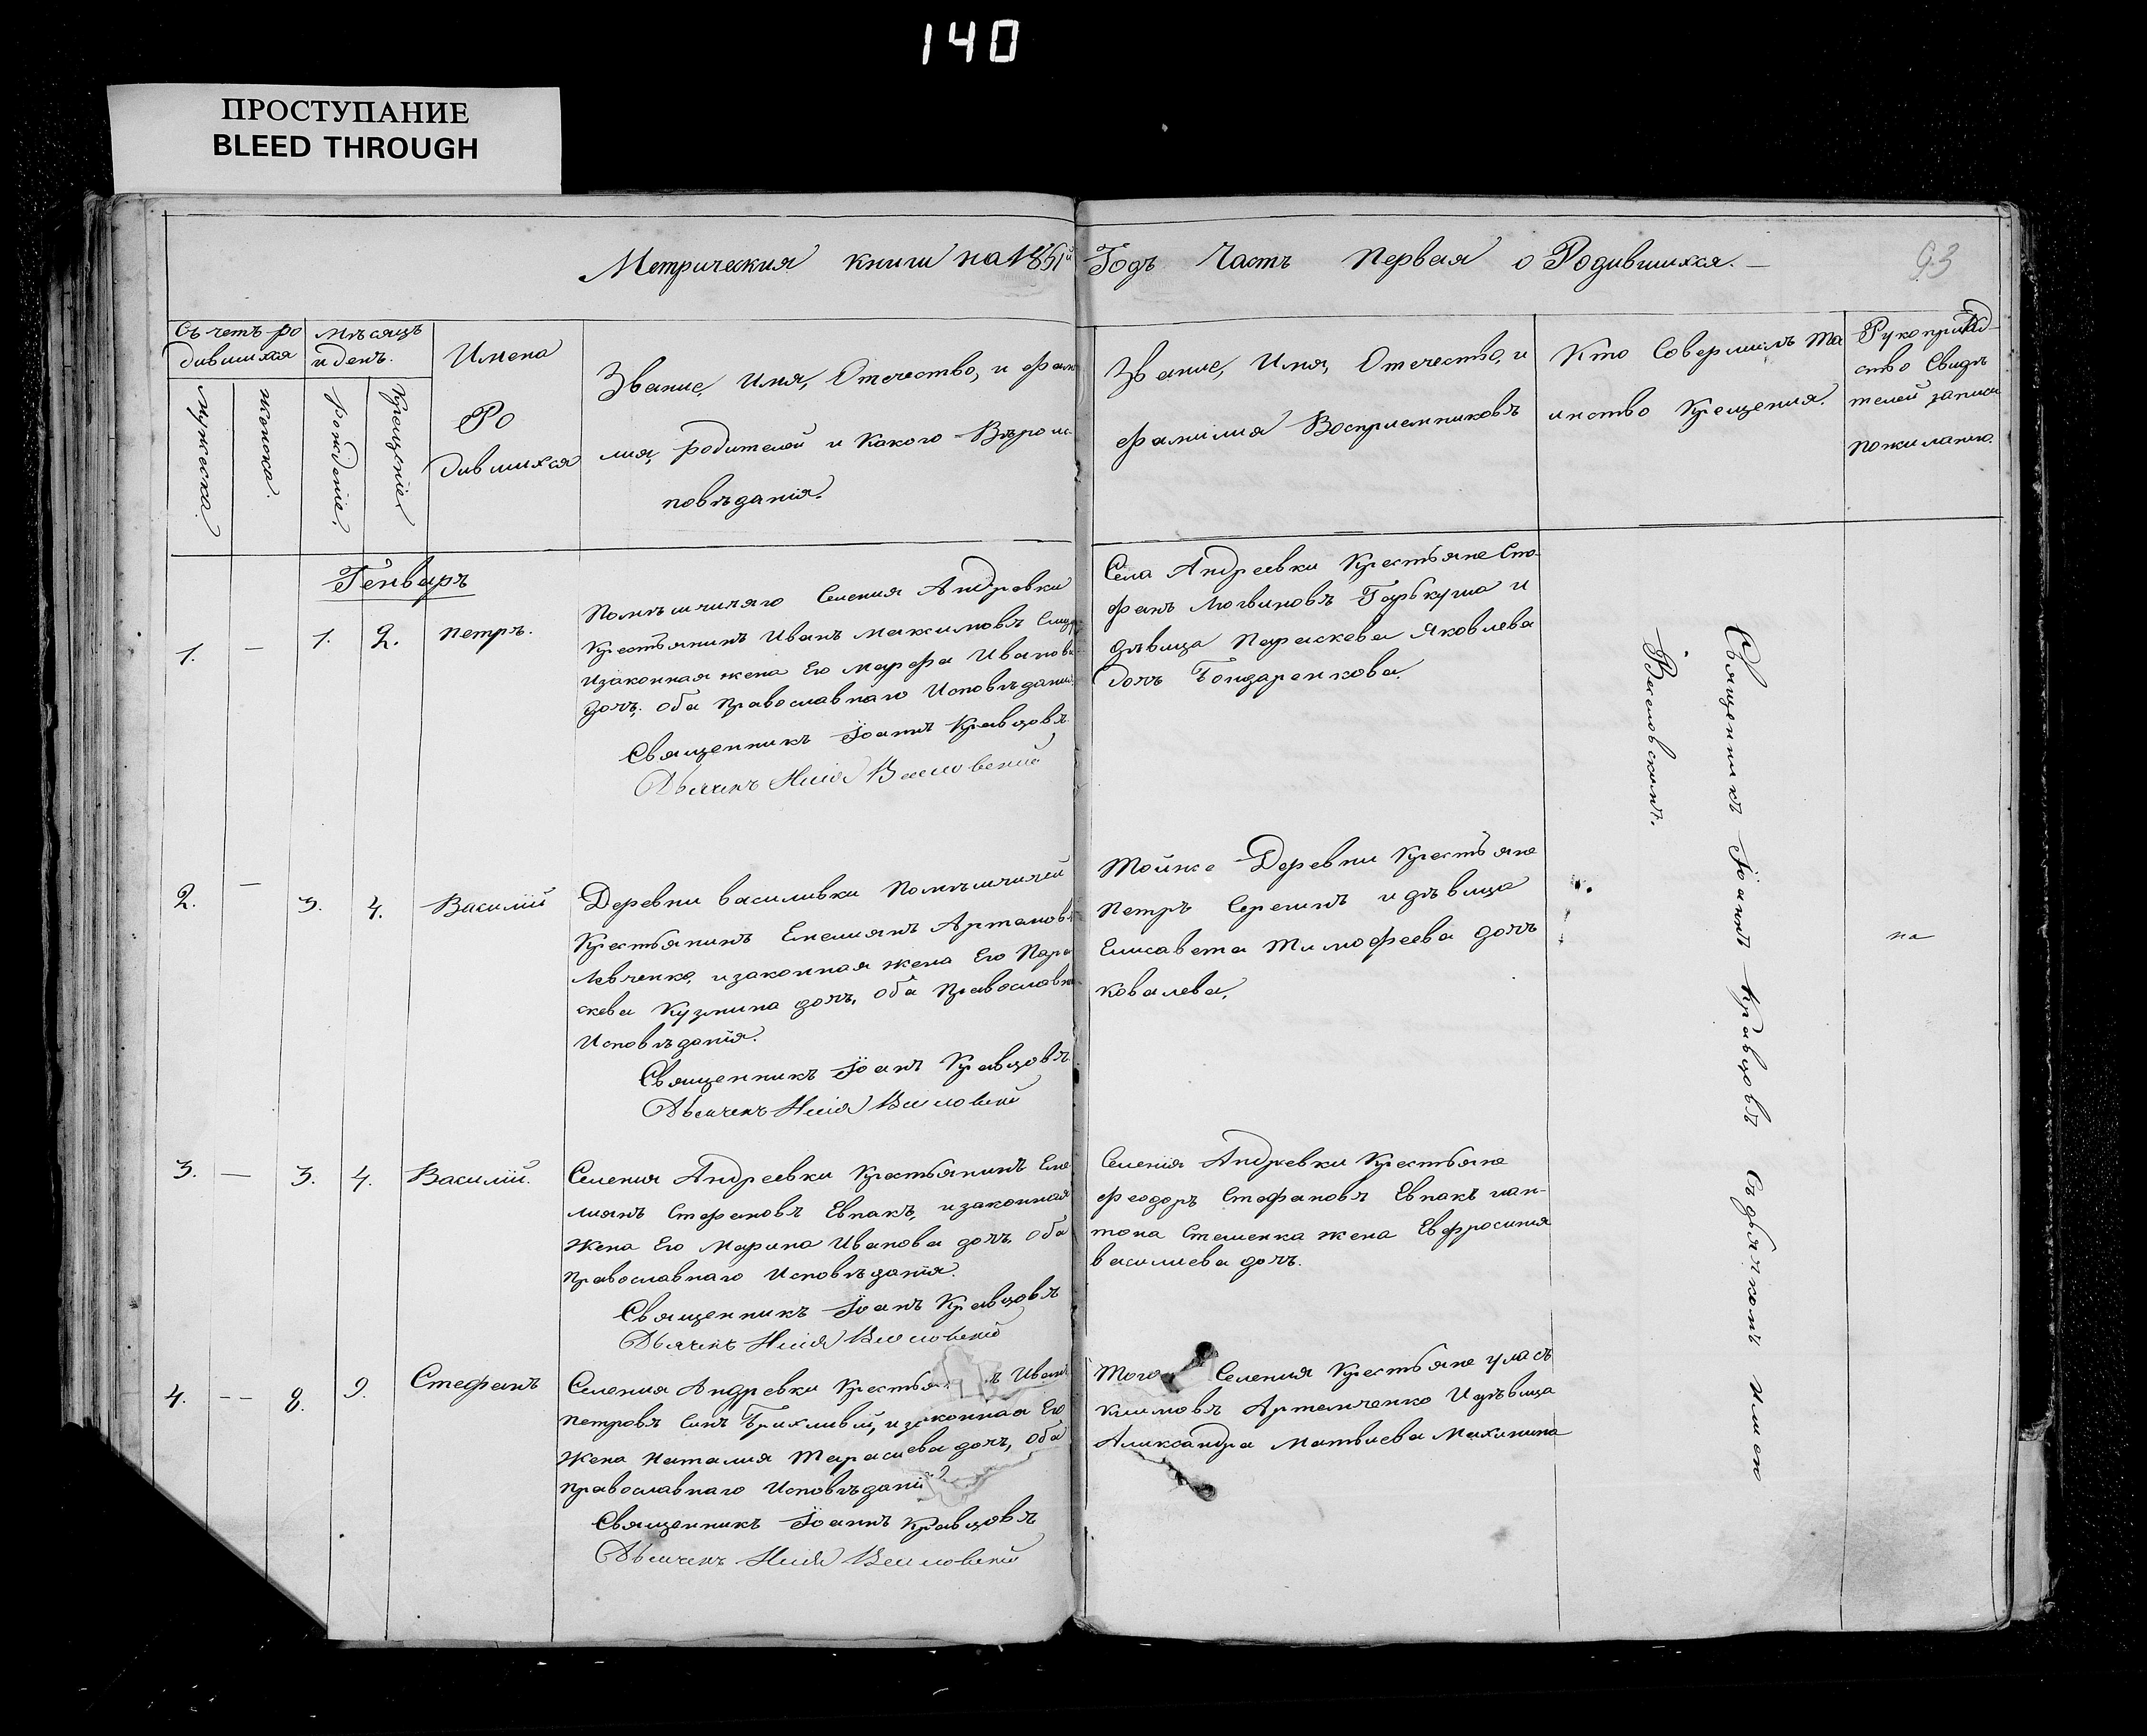 140
ПРОСТУПАНИЕ
BLEED THROUGH
Метрическия книги на 1851й Годъ Часть Первая о Родившихся.
93
Съчетъ ро
дившихся
мужеска.
женска.
Мѣсяцъ
и день.
рожденіе.
Крещеніе
Имена
Ро
дившихся
Званіе, Имя, Отечество, и фами
лия, родителей и Какого Вѣроис
повѣданія.
Званіе, Имя, Отечество, и
фамилия Восприемниковъ
Кто Совершилъ Та
инство Крещения.
Рукоприклад
ство Свидѣ
телей записи
пожиланию.
Генваръ
1. — 1. 2. Петръ.
Помѣщичяго Селения Андревки
Крестьянинъ Иванъ Максимовъ
изаконная жена Его Марфа Иванова
дочъ, оба Православнаго Исповѣдания.
Священникъ Іоаннъ Кравцовъ
Дьячекъ Илія Веселовский
Села Андреевки Крестьяне Сте-
фанъ Логвиновъ Горбкуша и
дѣвица Параскева Яковлева
дочъ Бондаренкова.
2. — 3. 4. Василій
Деревни василивки Помѣщичей
Крестьянинъ Емелиянъ Артамовъ
Левченко, изаконная жена Его Пара
скева Кузмина дочъ, оба Православна
Исповѣданія.
Священникъ Іоанъ Кравцовъ
Дьячекъ Илія Веселовский
Тойже Деревни Крестьяне
Петръ Серегинъ идѣвица
Елисавета Тимофеева дочъ
Ковалева.
на
3. — 3. 4. Василій.
Селения Андреевки Крестьянинъ Еме
лиянъ Стефановъ Евпакъ, изаконная
жена Его Марина Иванова дочъ, оба
Православнаго Исповѣданія.
Священникъ Іоанъ Кравцовъ
Дьячекъ Илія Веселовский
Селенія Андревки Крестьяне
Феодоръ Стефановъ Евпакъ иан-
тона Стешенка жена Евфросиния
василиева дочъ.
4. -- 8. 9. Стефанъ
Селения Андревки Крестья ъ Иванъ
Петровъ Синъ Брихливій, изаконная Его
Жена Наталия Тарасиева дочъ, оба
православнаго Исповѣдани
Священникъ Іоаннъ Кравцовъ
Дьячекъ Илія Веселовский
Того Селения Крестьяне уласъ
климовъ Артемченко Идѣвица
Александра Матвиева Махинина
Священникъ Іоаннъ Кравцовъ Съдьячкомъ Илиею
Веселовскимъ.